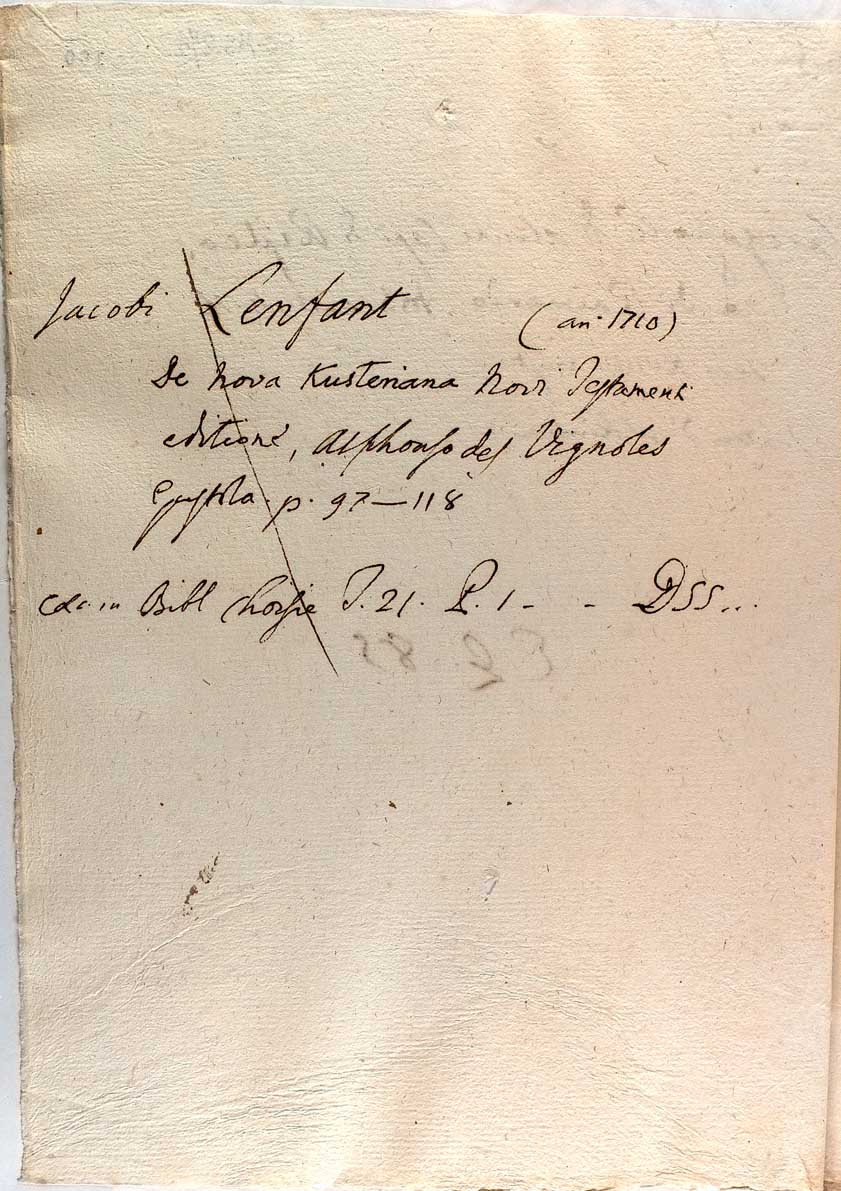 Jacobi Lenfant (an. 1710)
De nova Kusteriana Novi Testamenti
editione, Alphonso des Vignoles
Epistola. p. 97—118
in Bibl Choisie T. 21. P. 1 - - DSS...